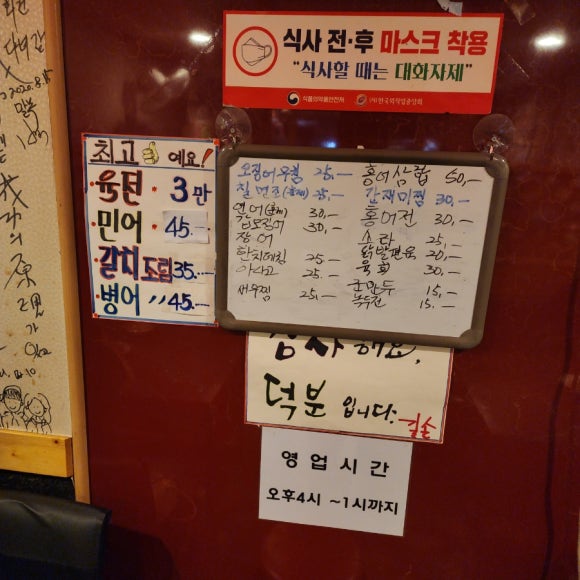 식사 전·후 마스크 착용
"식사할 때는 대화자제"
식품의약품안전처 (사)한국외식업중앙회
최고 예요!
육전 3만
민어 45.—
갈치조림 35.—
병어 〃 45.—
오징어무침 25.—
칠면조(훈제) 25,—
연어(훈제) 30,—
갑오징어 30,—
장어
한치데침 25—
아사고 25.—
새우찜 25,—
홍어삼합 50,—
간재미찜 30.—
홍어전 30.—
소라 25.—
닭발편육 20.—
육회 30.—
군만두 15,—
녹두전 15.—
감사해요.
덕분입니다.
영업시간
오후4시 ~1시까지
2020.8.15
의